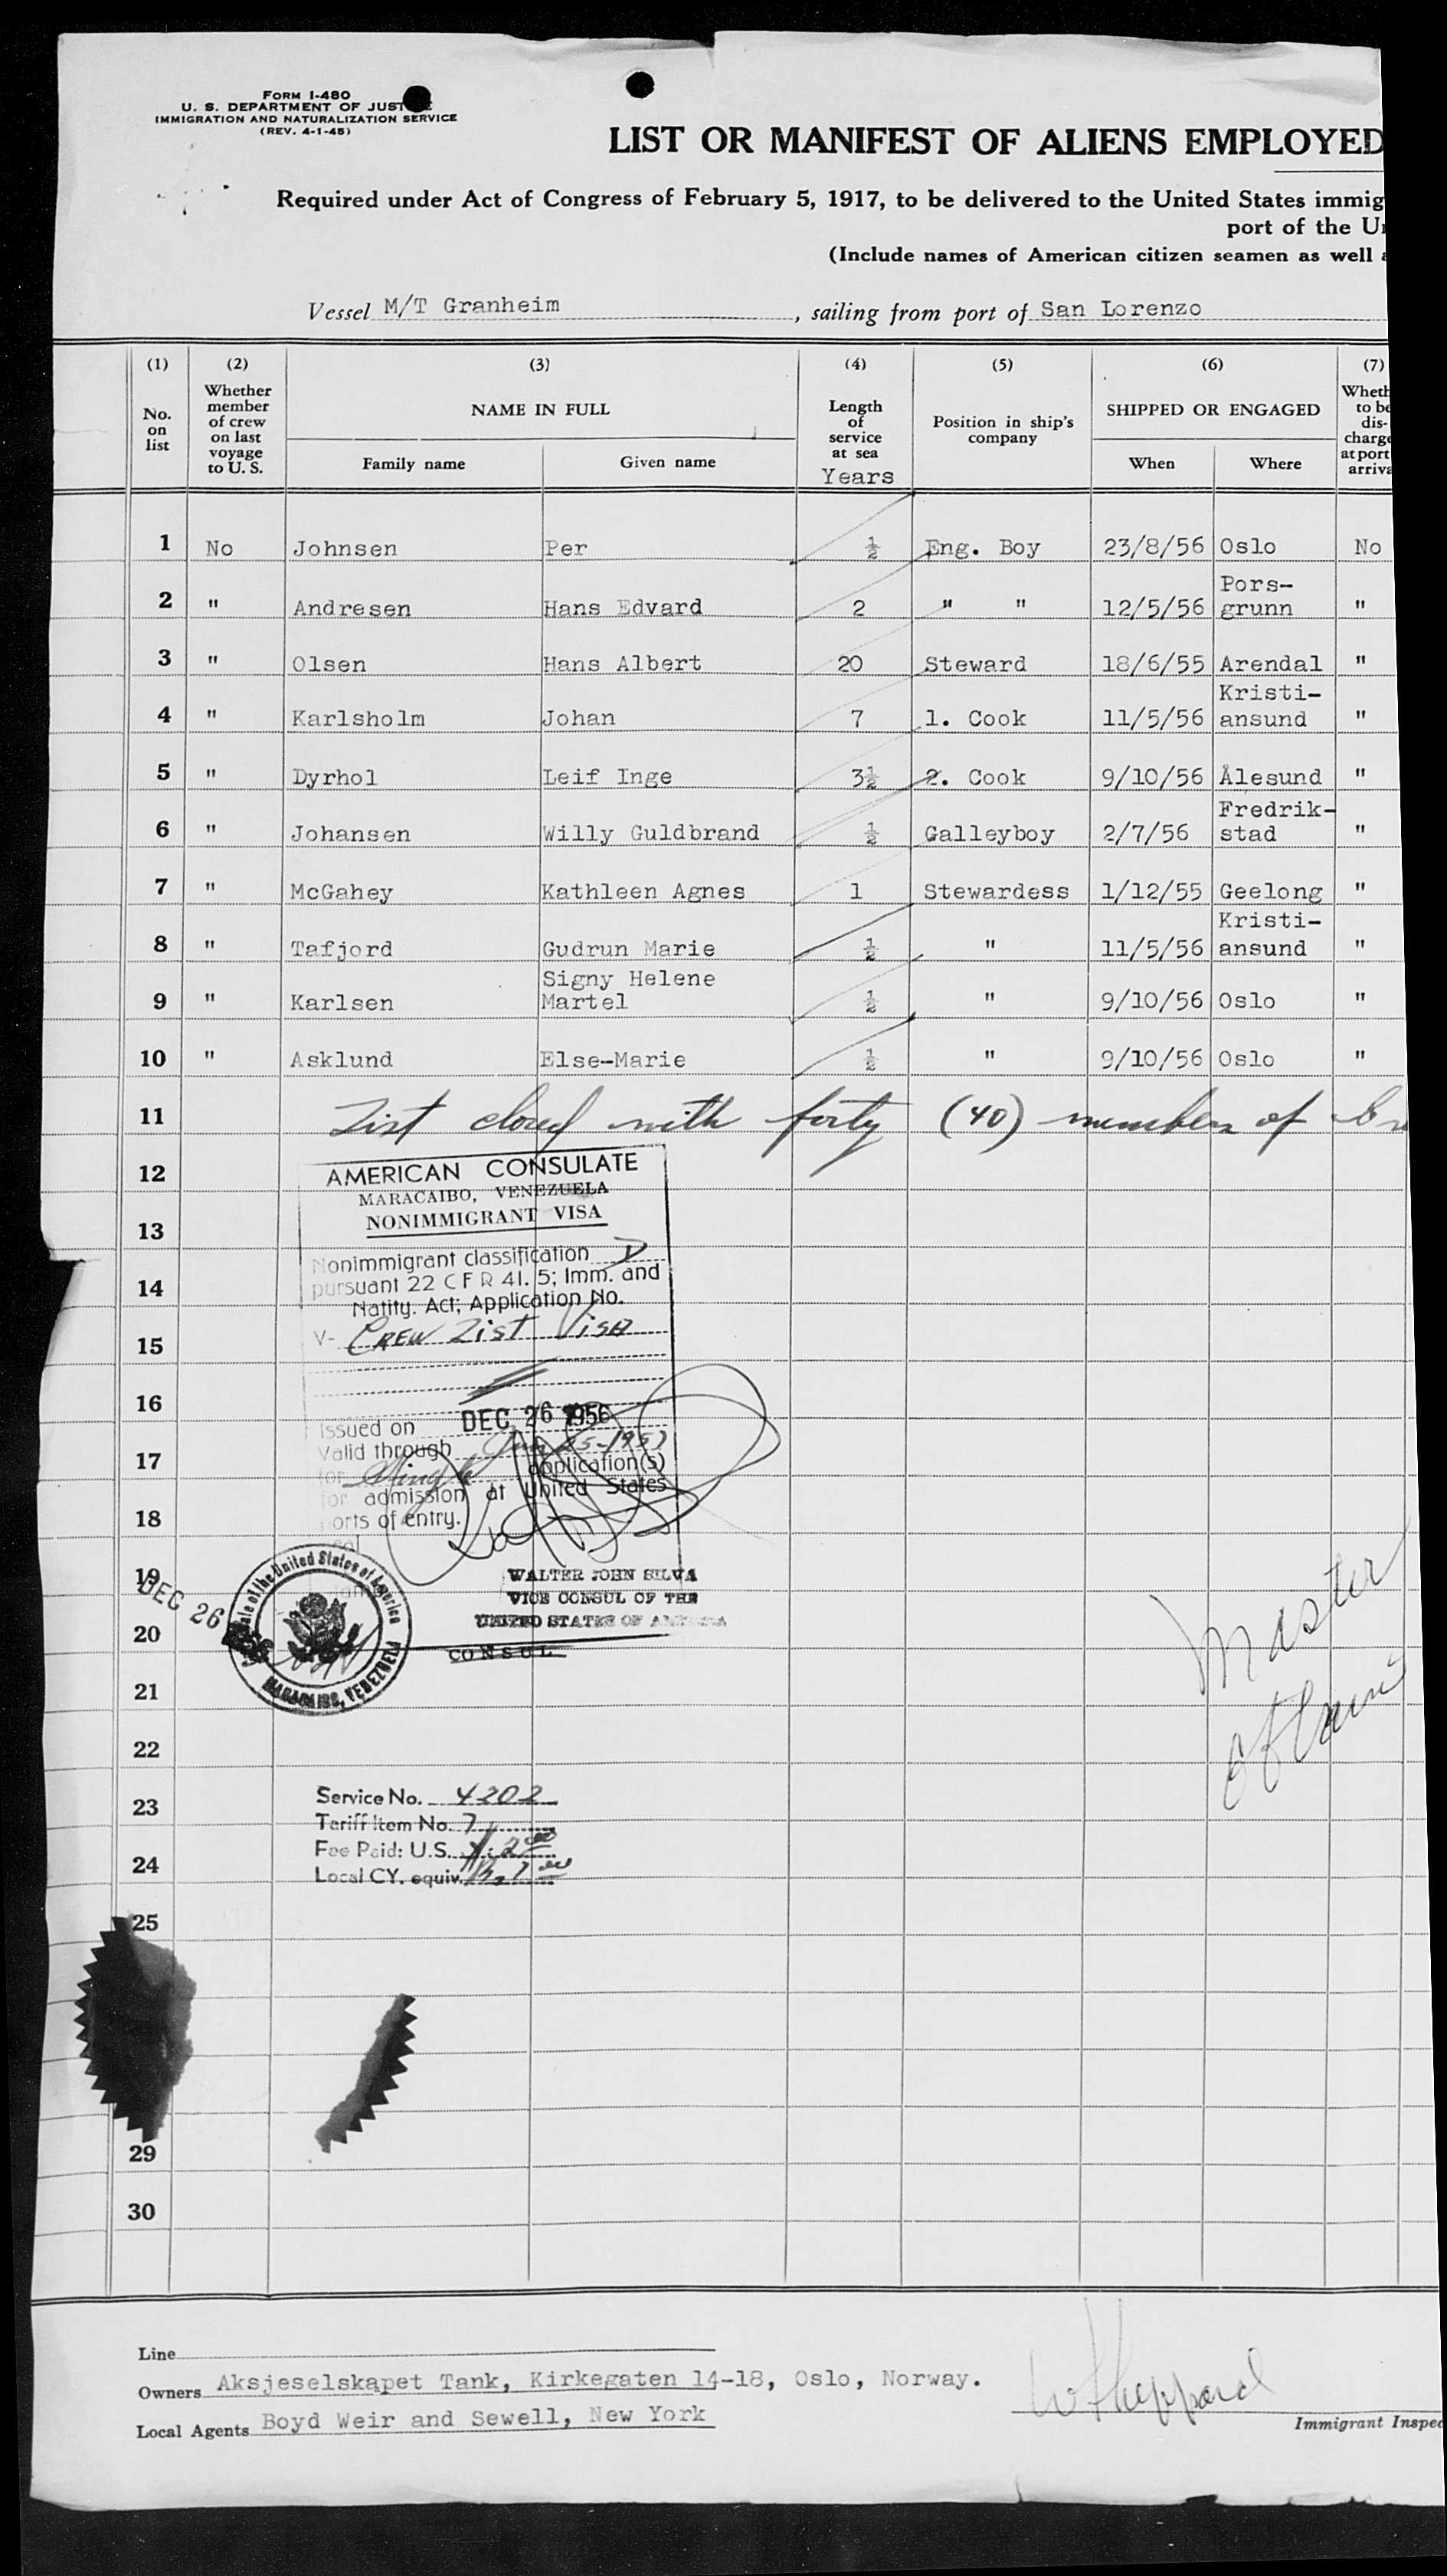 FORM I-480
U. S. DEPARTMENT OF JUST
IMMIGRATION AND NATURALIZATION SERVICE
(REV. 4-1-45)
LIST OR MANIFEST OF ALIENS EMPLOYED
Required under Act of Congress of February 5, 1917, to be delivered to the United States immig
port of the U
(Include names of American citizen seamen as well
Vessel M/T Granheim, sailing from port of San Lorenzo
(1) (2) (3) (4) (5) (6) (7)
No. on list
Whether member of crew on last voyage to U. S.
NAME IN FULL
Family name Given name
Length of service at sea
Years
Position in ship's company
SHIPPED OR ENGAGED
When Where
Wheth to be dis- charge at port arriva
1 No Johnsen Per ½ Eng. Boy 23/8/56 Oslo No
2 " Andresen Hans Edvard 2 " " 12/5/56 Pors- grunn "
3 " Olsen Hans Albert 20 Steward 18/6/55 Arendal "
4 " Karlsholm Johan 7 1. Cook 11/5/56 Kristi- ansund "
5 " Dyrhol Leif Inge 3½ 2. Cook 9/10/56 Ålesund "
6 " Johansen Willy Guldbrand ½ Galleyboy 2/7/56 Fredrik- stad "
7 " McGahey Kathleen Agnes 1 Stewardess 1/12/55 Geelong "
8 " Tafjord Gudrun Marie ½ " 11/5/56 Kristi- ansund "
9 " Karlsen Signy Helene Martel ½ " 9/10/56 Oslo "
10 " Asklund Else-Marie ½ " 9/10/56 Oslo "
11 List closed with forty (40) members of
12
AMERICAN CONSULATE
MARACAIBO, VENEZUELA
NONIMMIGRANT VISA
13
Nonimmigrant classification D
14
pursuant 22 C F R 41.5; Imm. and
Natity. Act; Application No.
15
V- CREW List Visa
16
Issued on DEC 26 1956
17
Valid through Jun 25-1957
for Single application(s)
for admission at United States
18
ports of entry.
19
DEC 26
WALTER JOHN SILVA
VICE CONSUL OF THE
UNITED STATES OF AMERICA
20
CONSUL
of the United States of America
MARACAIBO, VENEZUELA
Master
21
22
23
Service No. 4202
Tariff Item No. 7
24
Fee Paid: U.S. $ 2.00
Local CY. equiv.
25
29
30
Line
Owners Aksjeselskapet Tank, Kirkegaten 14-18, Oslo, Norway.
Local Agents Boyd Weir and Sewell, New York
W Sheppard
Immigrant Inspec